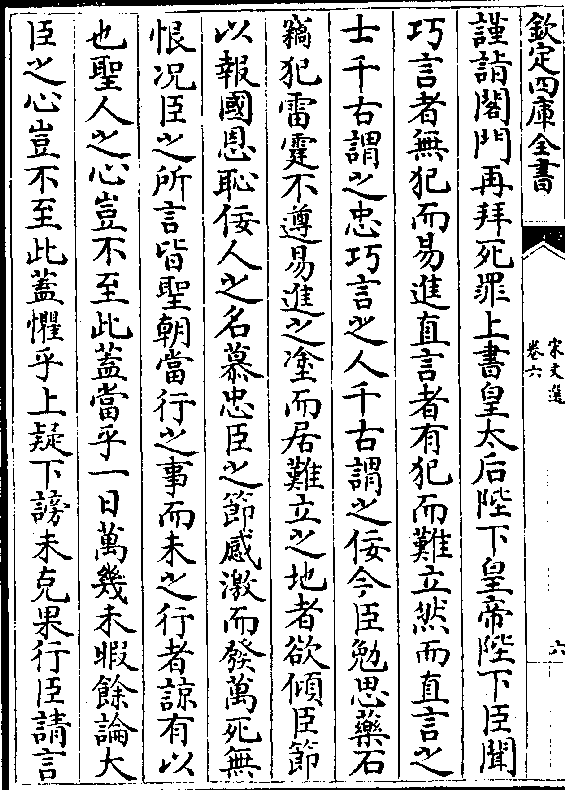 欽定四庫全書
宋文選
卷六
六
謹詣閤門再拜死罪上書皇太后陛下皇帝陛下臣聞
巧言者無犯而易進直言者有犯而難立然而直言之
士千古謂之忠巧言之人千古謂之佞今臣勉思藥石
竊犯雷霆不遵易進之塗而居難立之地者欲傾臣節
以報國恩恥佞人之名慕忠臣之節感激而發萬死無
恨况臣之所言皆聖朝當行之事而未之行者諒有以
也聖人之心豈不至此蓋當乎一日萬幾未暇餘論大
臣之心豈不至此蓋懼乎上疑下謗未克果行臣請言